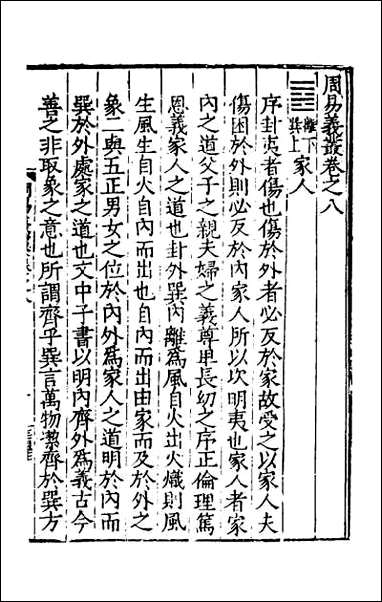 周易義叢卷之八
䷤離下巽上家人
序卦夷者傷也傷於外者必反於家故受之以家人夫
傷困於外則必反於內家人所以次明夷也家人者家
內之道父子之親夫婦之義尊卑長幼之序正倫理篤
恩義家人之道也卦外巽內離為風自火出火熾則風
生風生自火自內而出也自內而出由家而及於外之
象二與五正男女之位於內外爲家人之道明於內而
巽於外處家之道也文中子書以明內齊外爲義古今
善之非取象之意也所謂齊乎巽言萬物潔齊於巽方